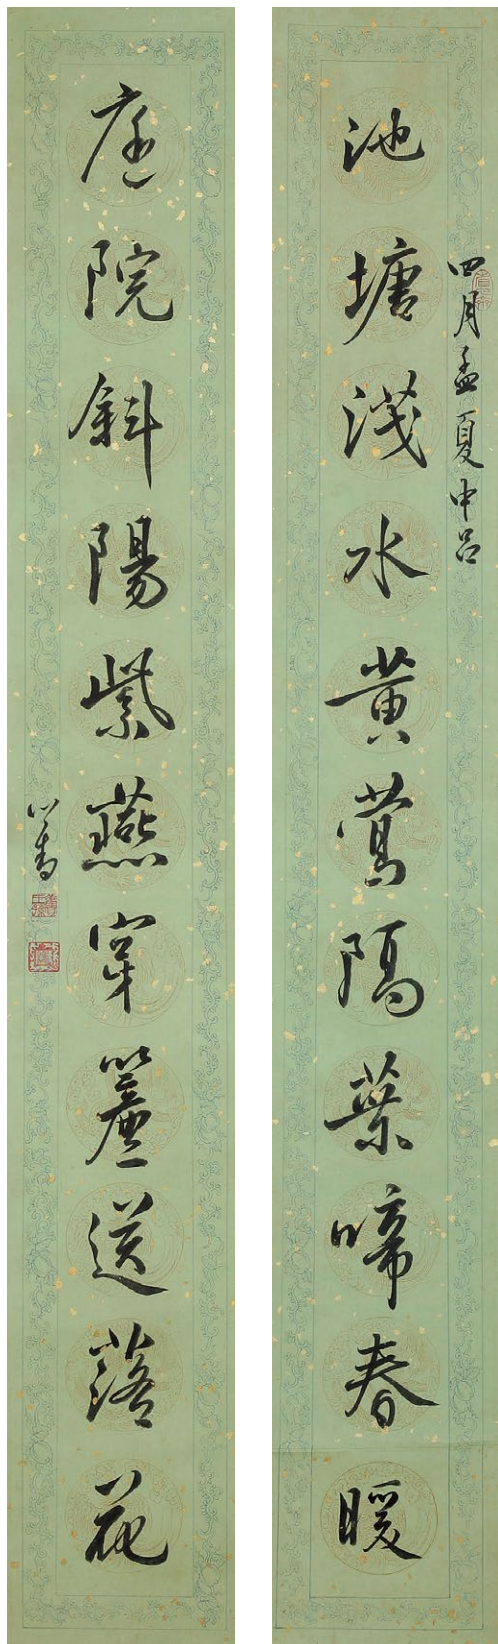 池塘淺水黃鶯隔葉啼春暖
四月孟夏中呂
庭院斜陽紫燕穿簾送落花
心畬